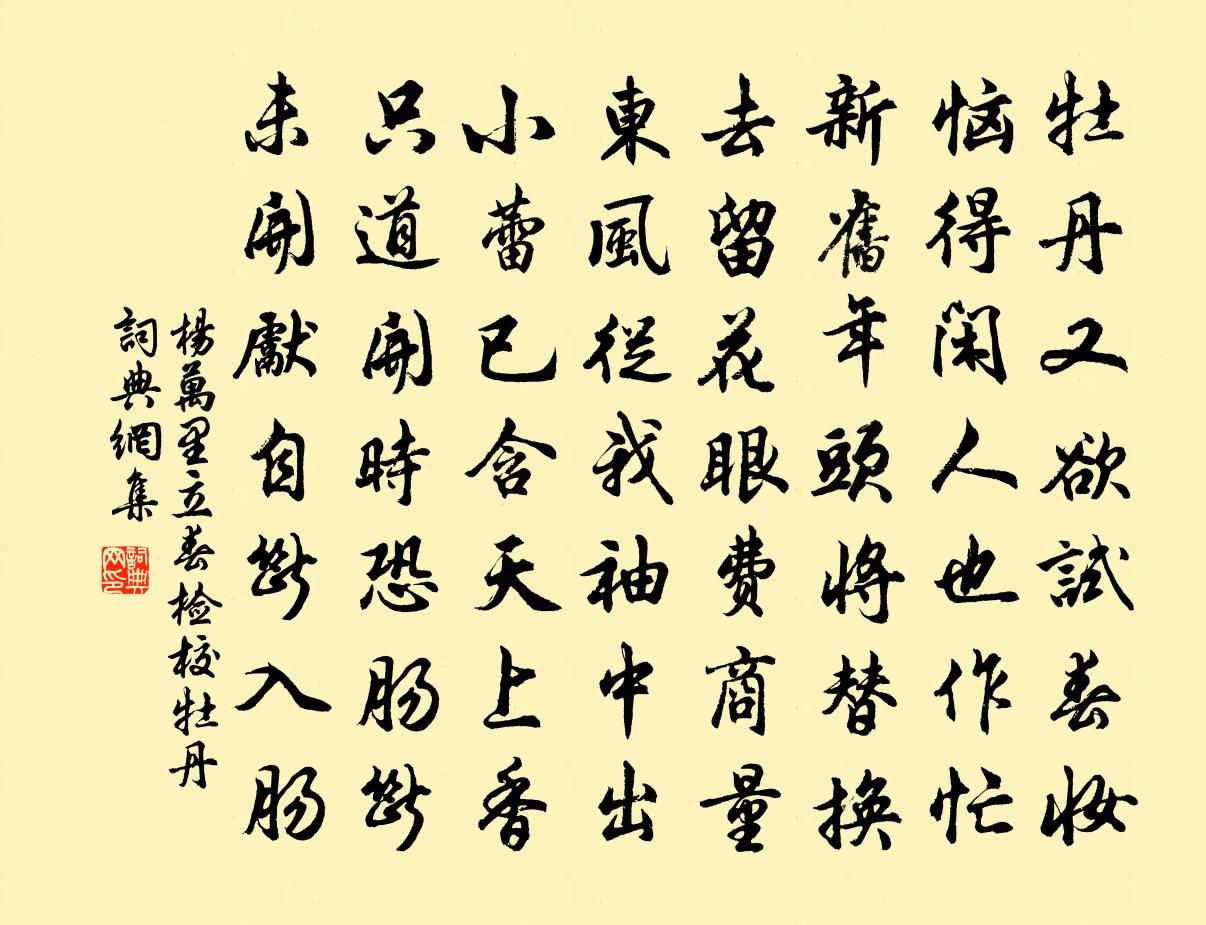 牡丹又欲試春妝
惱得閑人也作忙
新舊年頭將替換
去留花眼費商量
東風從我袖中出
小蕾已含天上香
只道開時恐腸斷
未開獻自斷入腸
楊萬里立春檢校牡丹
詞典網集
詞典网印